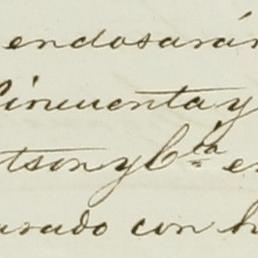 endosarán
Cincuenta y
tson y Cia en
urado con h